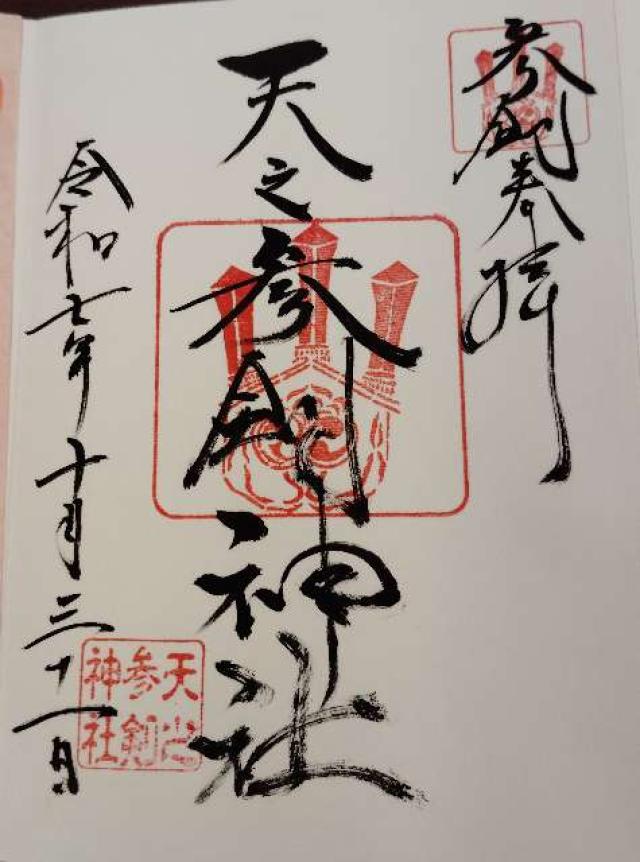 参剣奉拝
天之参剣神社
令和七年十月三十一日
天之
参剣
神社